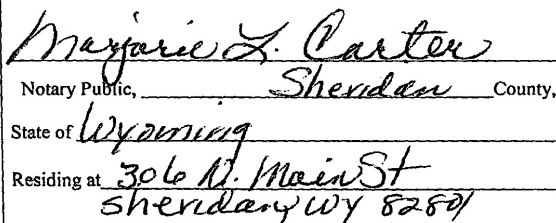 Marjorie L. Carter
Notary Public, Sheridan County,
State of Wyoming
Residing at 306 N. Main St
Sheridan, WY 82801